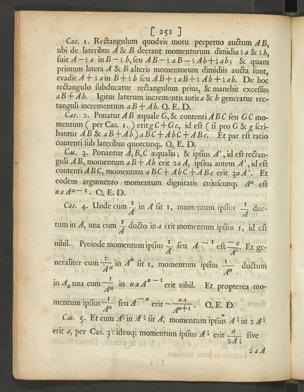 [ 252 ]
Cas. 1. Rectangulum quodvis motu perpetuo auctum AB,
ubi de lateribus A & B deerant momentorum dimidia ½a & ½b,
fuit A−½a in B−½b, seu AB−½aB−½Ab+¼ab; & quam
primum latera A & B alteris momentorum dimidiis aucta sunt,
evadit A+½a in B+½b seu AB+½aB+½Ab+¼ab. De hoc
rectangulo subducatur rectangulum prius, & manebit excessus
aB+Ab. Igitur laterum incrementis totis a & b generatur rec-
tanguli incrementum aB+Ab. Q. E. D.
Cas. 2. Ponatur AB æquale G, & contenti ABC seu GC mo-
mentum (per Cas. 1.) erit gC+Gc, id est (si pro G & g scri-
bantur AB & aB+Ab) aBC+AbC+ABc. Et par est ratio
contenti sub lateribus quotcunq; Q. E. D.
Cas. 3. Ponantur A, B, C æqualia; & ipsius A², id est rectan-
guli AB, momentum aB+Ab erit 2aA, ipsius autem A³, id est
contenti ABC, momentum aBC+AbC+ABc erit 3aA². Et
eodem argumento momentum dignitatis cujuscunq; Aⁿ est
naAⁿ⁻¹. Q. E. D.
Cas. 4. Unde cum 1/A in A sit 1, momentum ipsius 1/A duc-
tum in A, una cum 1/A ducto in a erit momentum ipsius 1, id est
nihil. Proinde momentum ipsius 1/A seu A⁻¹ est −a/A². Et ge-
neraliter cum 1/Aⁿ in Aⁿ sit 1, momentum ipsius 1/Aⁿ ductum
in Aⁿ una cum 1/Aⁿ in naAⁿ⁻¹ erit nihil. Et propterea mo-
mentum ipsius 1/Aⁿ seu A⁻ⁿ erit −na/Aⁿ⁺¹. Q. E. D.
Cas. 5. Et cum A½ in A½ sit A, momentum ipsius A½ in 2A½
erit a, per Cas. 3: ideoq; momentum ipsius A½ erit a/2A½ sive